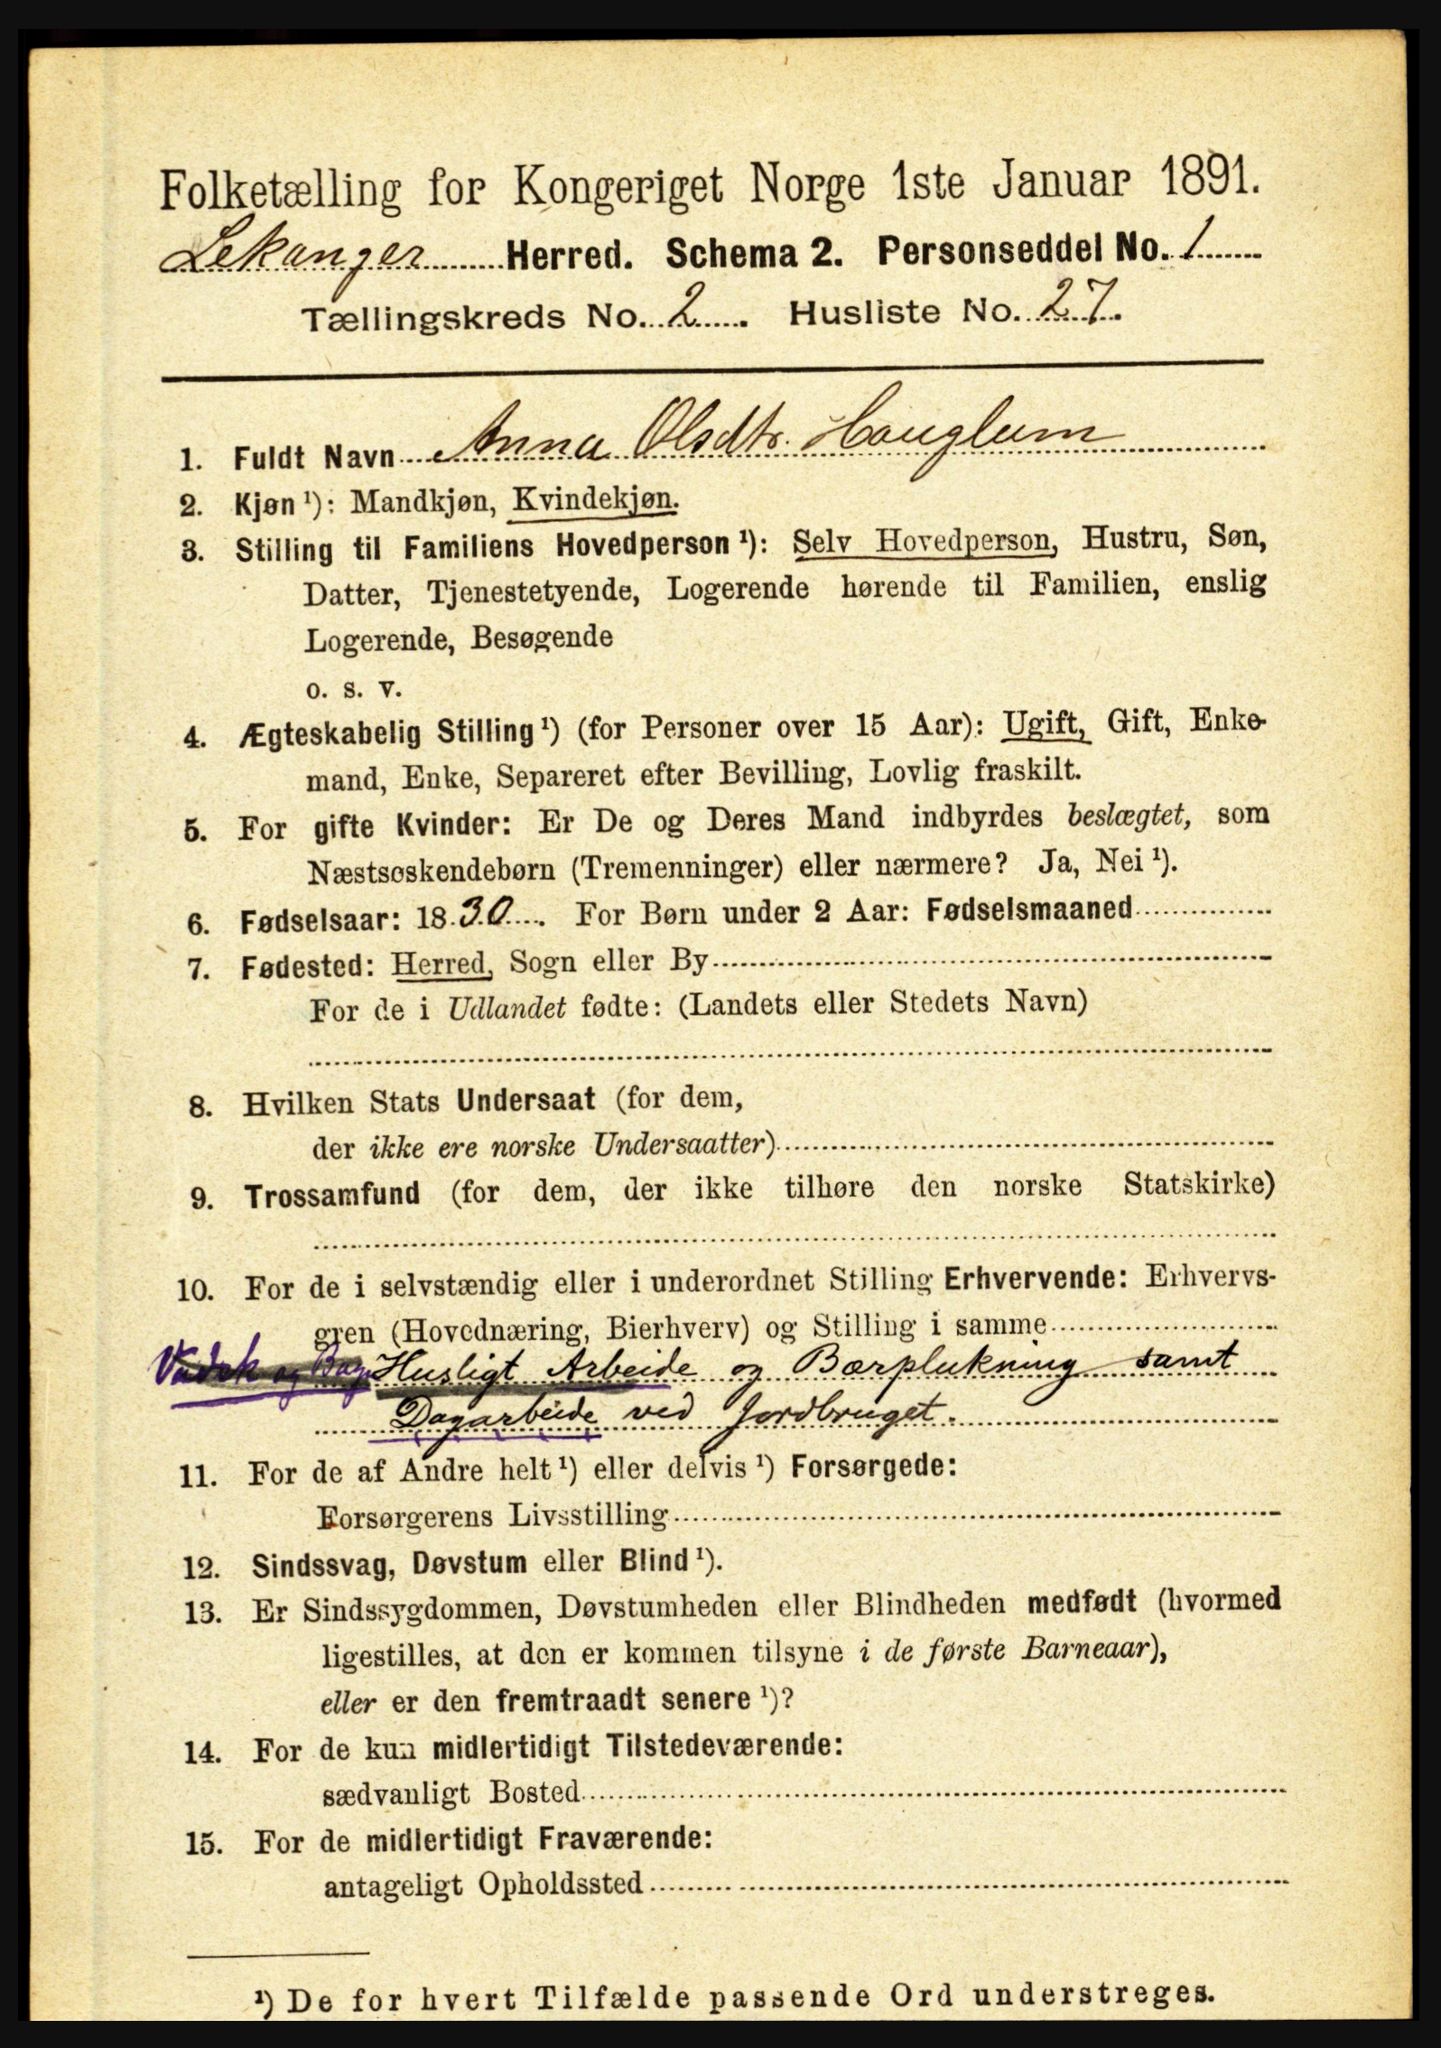 Folketælling for Kongeriget Norge 1ste Januar 1891.
Lekanger Herred. Schema 2. Personseddel No. 1
Tællingskreds No. 2. Husliste No. 27.
1. Fuldt Navn Anna Olsdtr. Houglum
2. Kjøn ¹): Mandkjøn, Kvindekjøn.
3. Stilling til Familiens Hovedperson ¹): Selv Hovedperson, Hustru, Søn,
Datter, Tjenestetyende, Logerende hørende til Familien, enslig
Logerende, Besøgende
o. s. v.
4. Ægteskabelig Stilling ¹) (for Personer over 15 Aar): Ugift, Gift, Enke-
mand, Enke, Separeret efter Bevilling, Lovlig fraskilt.
5. For gifte Kvinder: Er De og Deres Mand indbyrdes beslægtet, som
Næstsøskendebørn (Tremenninger) eller nærmere? Ja, Nei ¹).
6. Fødselsaar: 1830. For Børn under 2 Aar: Fødselsmaaned
7. Fødested: Herred, Sogn eller By
For de i Udlandet fødte: (Landets eller Stedets Navn)
8. Hvilken Stats Undersaat (for dem,
der ikke ere norske Undersaatter)
9. Trossamfund (for dem, der ikke tilhøre den norske Statskirke)
10. For de i selvstændig eller i underordnet Stilling Erhvervende: Erhvervs-
gren (Hovednæring, Bierhverv) og Stilling i samme
og Husligt Arbeide og Bærplukning samt
Dagarbeide ved Jordbruget.
11. For de af Andre helt ¹) eller delvis ¹) Forsørgede:
Forsørgerens Livsstilling
12. Sindssvag, Døvstum eller Blind ¹).
13. Er Sindssygdommen, Døvstumheden eller Blindheden medfødt (hvormed
ligestilles, at den er kommen tilsyne i de første Barneaar),
eller er den fremtraadt senere ¹)?
14. For de kun midlertidigt Tilstedeværende:
sædvanligt Bosted
15. For de midlertidigt Fraværende:
antageligt Opholdssted
¹) De for hvert Tilfælde passende Ord understreges.